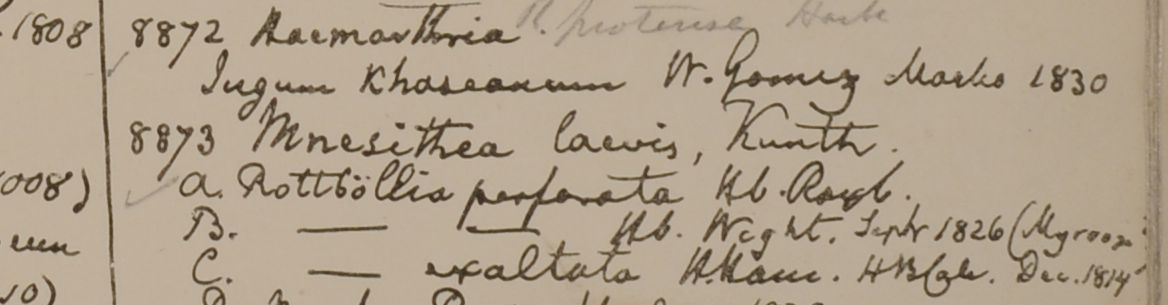 1808 8872 Haemarthria R. protensa Hack
Jugum Khaseanum W. Gomez Martio 1830
8873 Mnesithea laevis, Kunth.
008) a. Rottböllia perforata Hb. Roxb.
B. — — Hb. Wight. Septr 1826 (Mysore
C. — exaltata H. Ham. H B Calc. Dec. 1814
10)